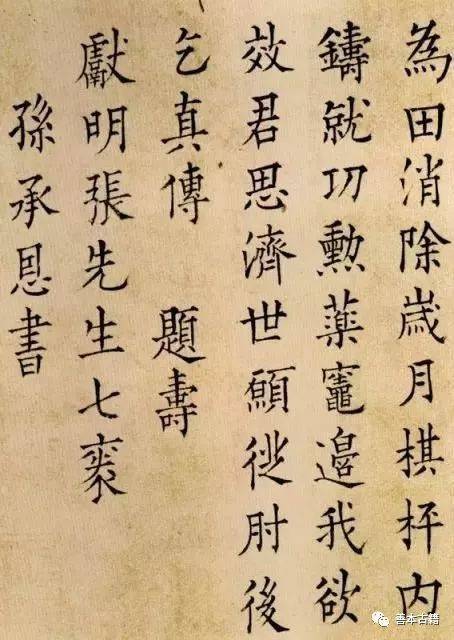 為田消除歲月棋枰内
鑄就功勳藥竈邉我欲
效君思濟世願從肘後
乞真傳 題壽
獻明張先生七袠
孫承恩書
善本古籍